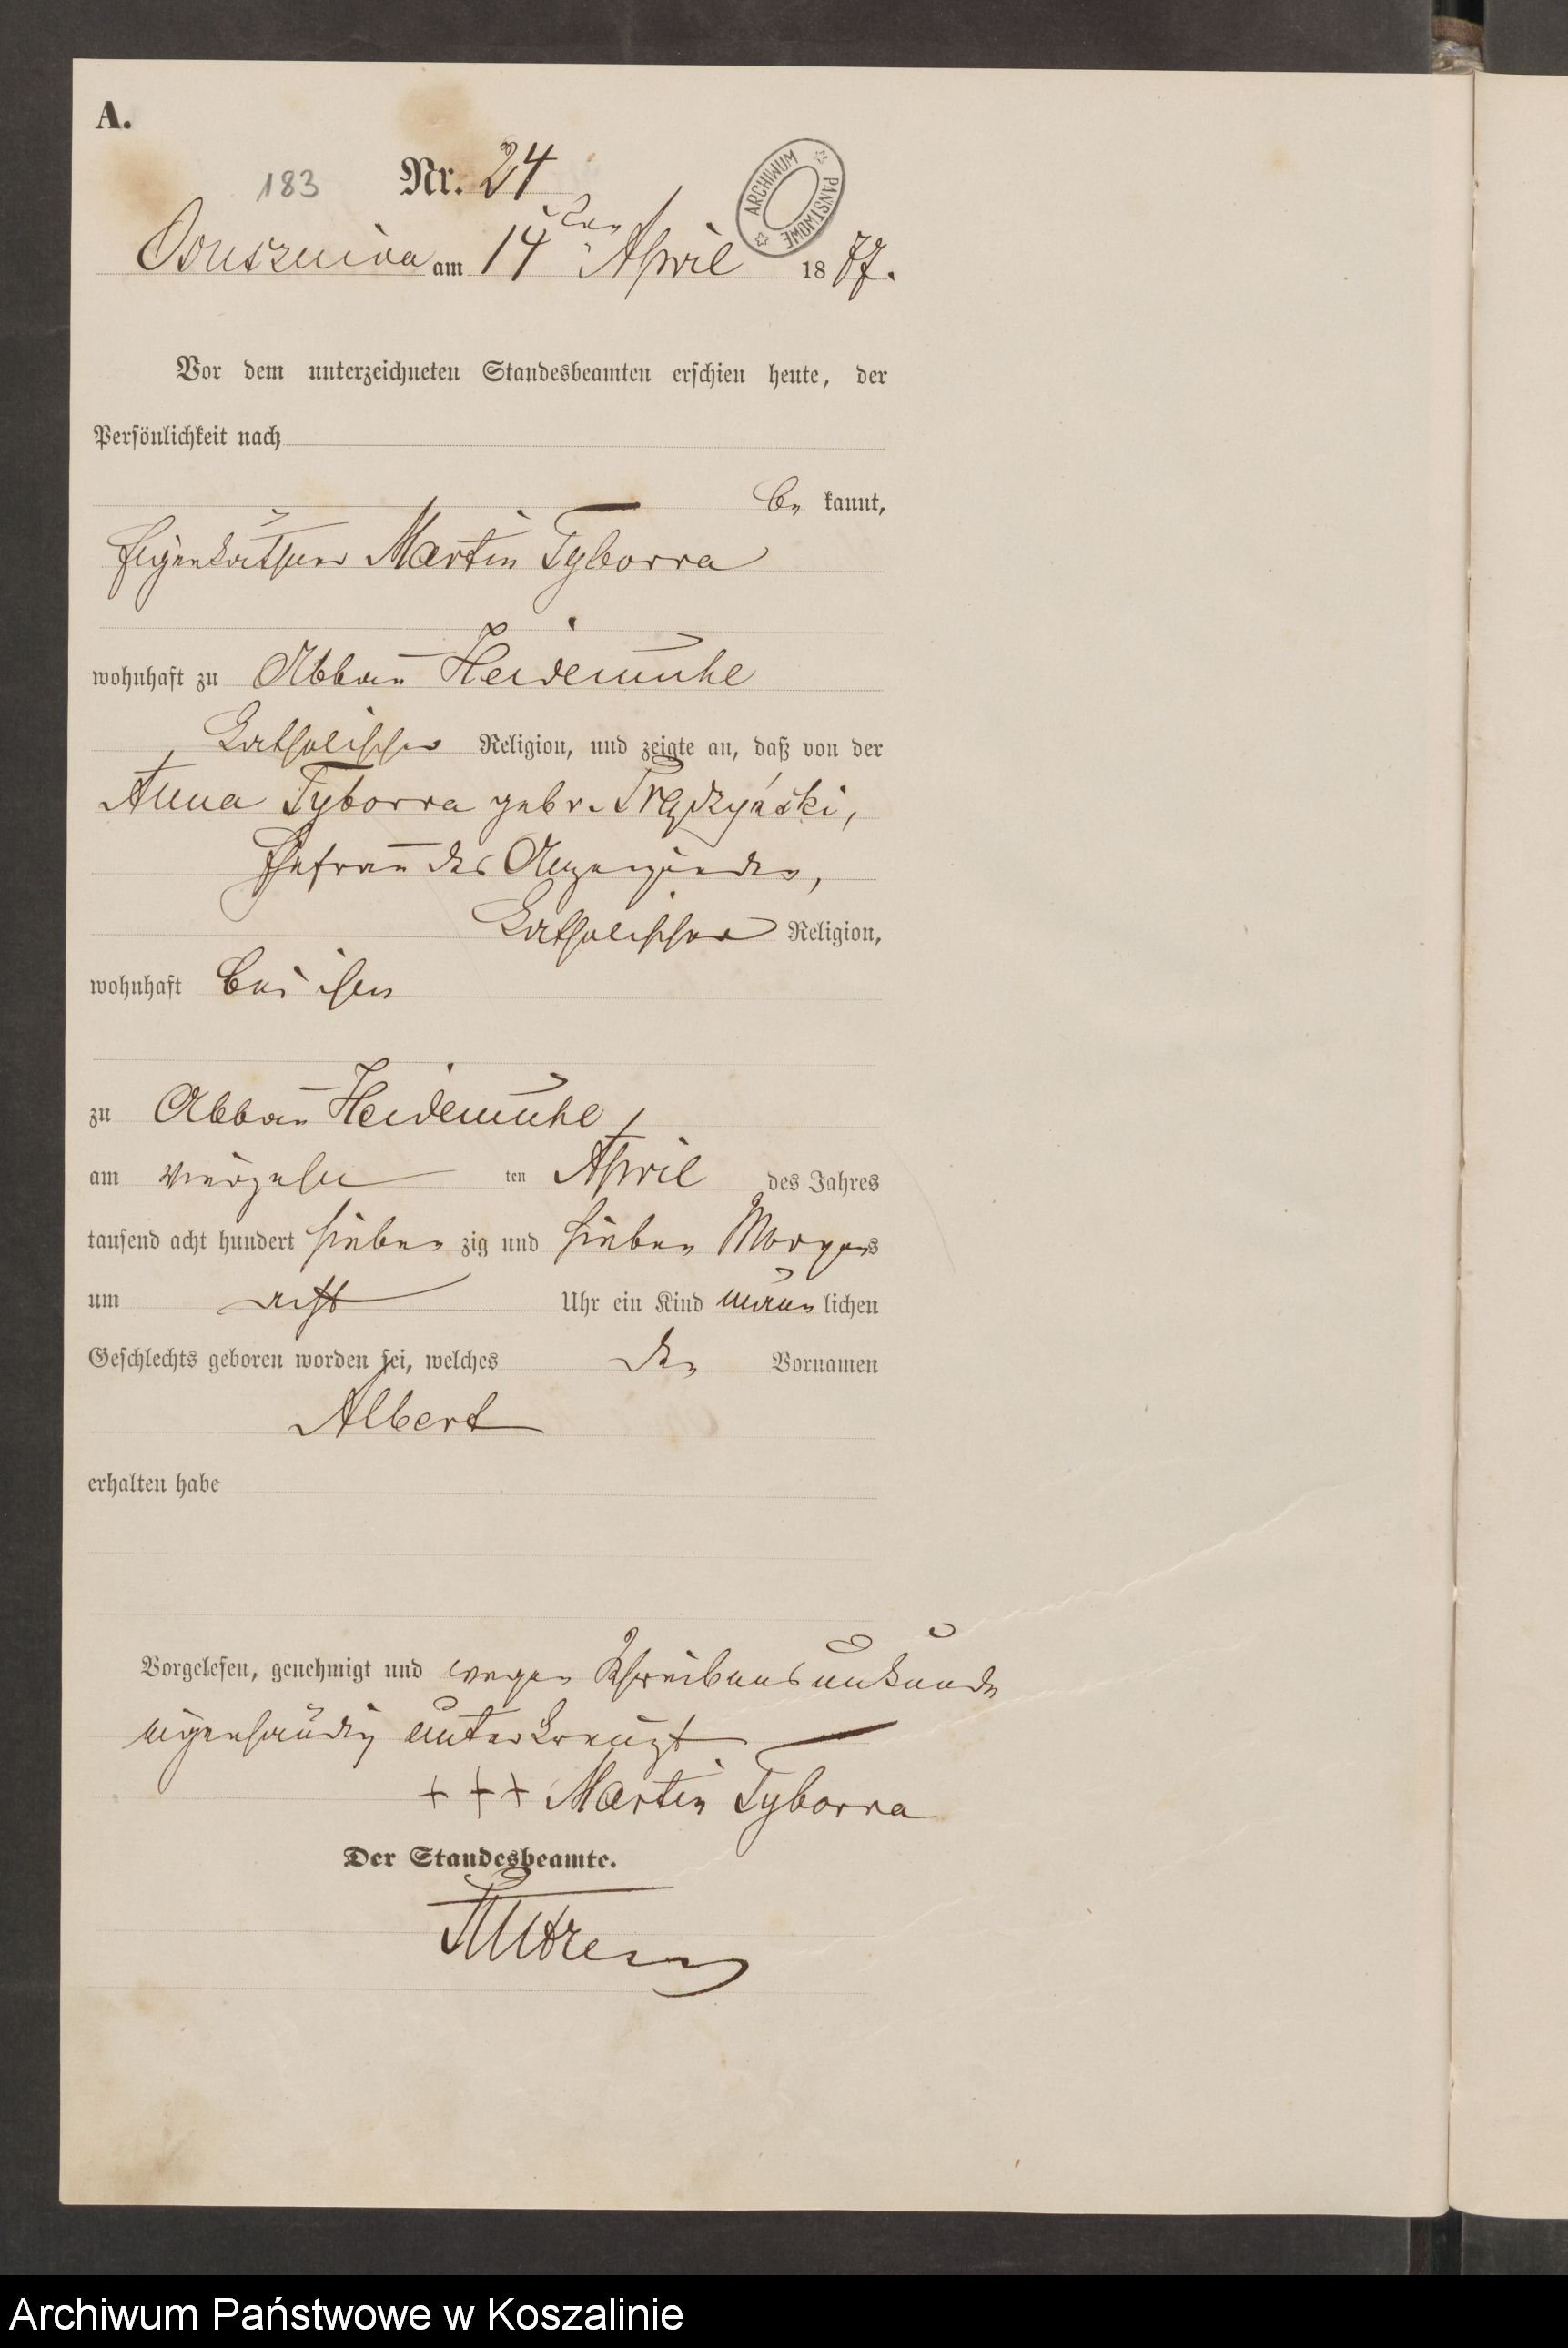 A.
183 Nr. 24
ARCHIWUM PAŃSTWOWE
Ossuszniça am 14ten April 1877.
Vor dem unterzeichneten Standesbeamten erschien heute, der
Persönlichkeit nach
be kannt,
Eigenkäthner Martin Tyborra
wohnhaft zu Abbau Heidemühl
katholischer Religion, und zeigte an, daß von der
Anna Tyborra gebr. Prądzyński,
Ehefrau des Anzeigenden,
katholischer Religion,
wohnhaft bei ihm
zu Abbau Heidemühl
am vierzehn ten April des Jahres
tausend acht hundert sieben zig und sieben Morgens
um acht Uhr ein Kind männ lichen
Geschlechts geboren worden sei, welches den Vornamen
Albert
erhalten habe
Vorgelesen, genehmigt und wegen Schreibensunkunde
eigenhändig unterkreuzt
+ + + Martin Tyborra
Der Standesbeamte.
Archiwum Państwowe w Koszalinie